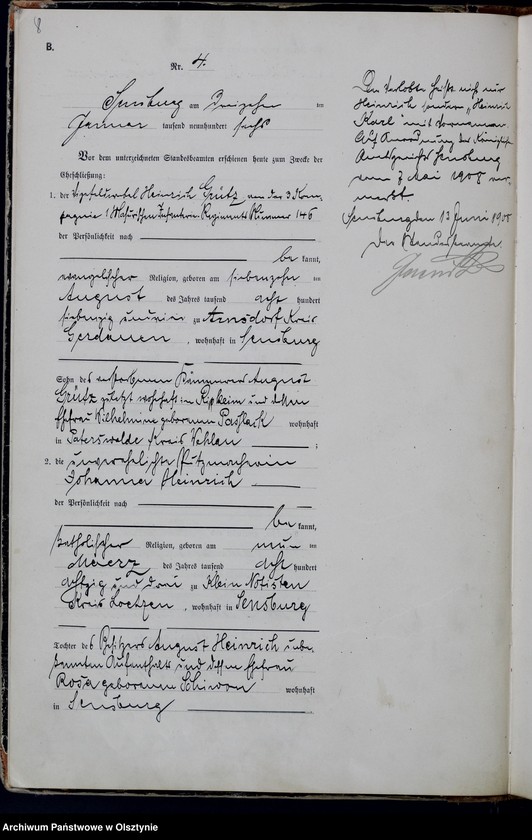 8
B.
Nr. 4.
Sensburg am dreizehn ten
Januar tausend neunhundert sechs
Vor dem unterzeichneten Standesbeamten erschienen heute zum Zwecke der
Eheschließung:
1. der Vizefeldwebel Heinrich Grütz von der 3 Kom-
pagnie 1 Masurischen Infanterie Regiments Nummer 146
der Persönlichkeit nach
be kannt,
evangelischer Religion, geboren am siebenzehn ten
August des Jahres tausend acht hundert
siebenzig und zu Arnsdorf Kreis
Gerdauen, wohnhaft in Sensburg
Sohn des verstorbenen Kämmerers August
Grütz zuletzt wohnhaft in und dessen
Ehefrau Wilhelmine geborenen wohnhaft
in Paterswalde Kreis Wehlau ;
2. die unverehelichte Putzmacherin
Johanna Heinrich
der Persönlichkeit nach
be kannt,
katholischer Religion, geboren am neun ten
Maerz des Jahres tausend acht hundert
achtzig und drei zu Klein Notisten
Kreis Loetzen, wohnhaft in Sensburg
Tochter des Besitzers August Heinrich unbe-
kannten Aufenthalts und dessen Ehefrau
Rosa geborenen wohnhaft
in Sensburg
Der Verlobte heißt nicht nur
Heinrich sondern „Heinrich
Karl" mit Vornamen.
Auf Anordnung des Königlichen
Amtsgerichts Sensburg
vom 7 Mai 1908 ver-
merkt.
Sensburg den 13 Juni 1908
Der Standesbeamte
Archiwum Państwowe w Olsztynie